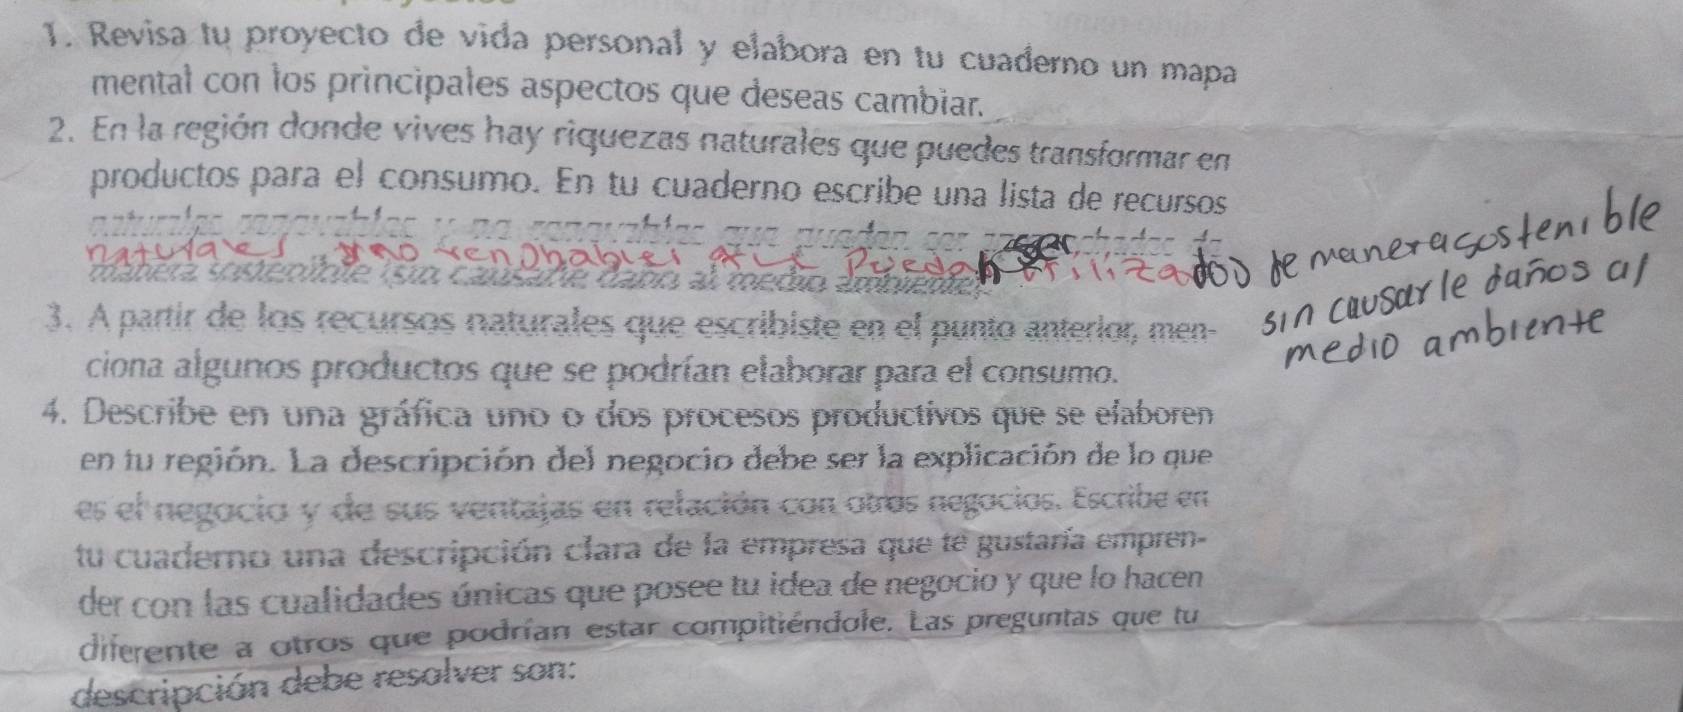 1. Revisa tu proyecto de vida personal y elabora en tu cuaderno un mapa
mental con los principales aspectos que deseas cambiar.
2. En la región donde vives hay riquezas naturales que puedes transformar en
productos para el consumo. En tu cuaderno escribe una lista de recursos
naturales renovables y no renovables que puedan ser aprovechados de
naturales y no renobables que puedan utilizados de manera sostenible
sin causarle daños al
medio ambiente
manera sostenible (sin causarle daño al medio ambiente).
3. A partir de los recursos naturales que escribiste en el punto anterior, men-
ciona algunos productos que se podrían elaborar para el consumo.
4. Describe en una gráfica uno o dos procesos productivos que se elaboren
en tu región. La descripción del negocio debe ser la explicación de lo que
es el negocio y de sus ventajas en relación con otros negocios. Escribe en
tu cuaderno una descripción clara de la empresa que te gustaría empren-
der con las cualidades únicas que posee tu idea de negocio y que lo hacen
diferente a otros que podrían estar compitiéndole. Las preguntas que tu
descripción debe resolver son: